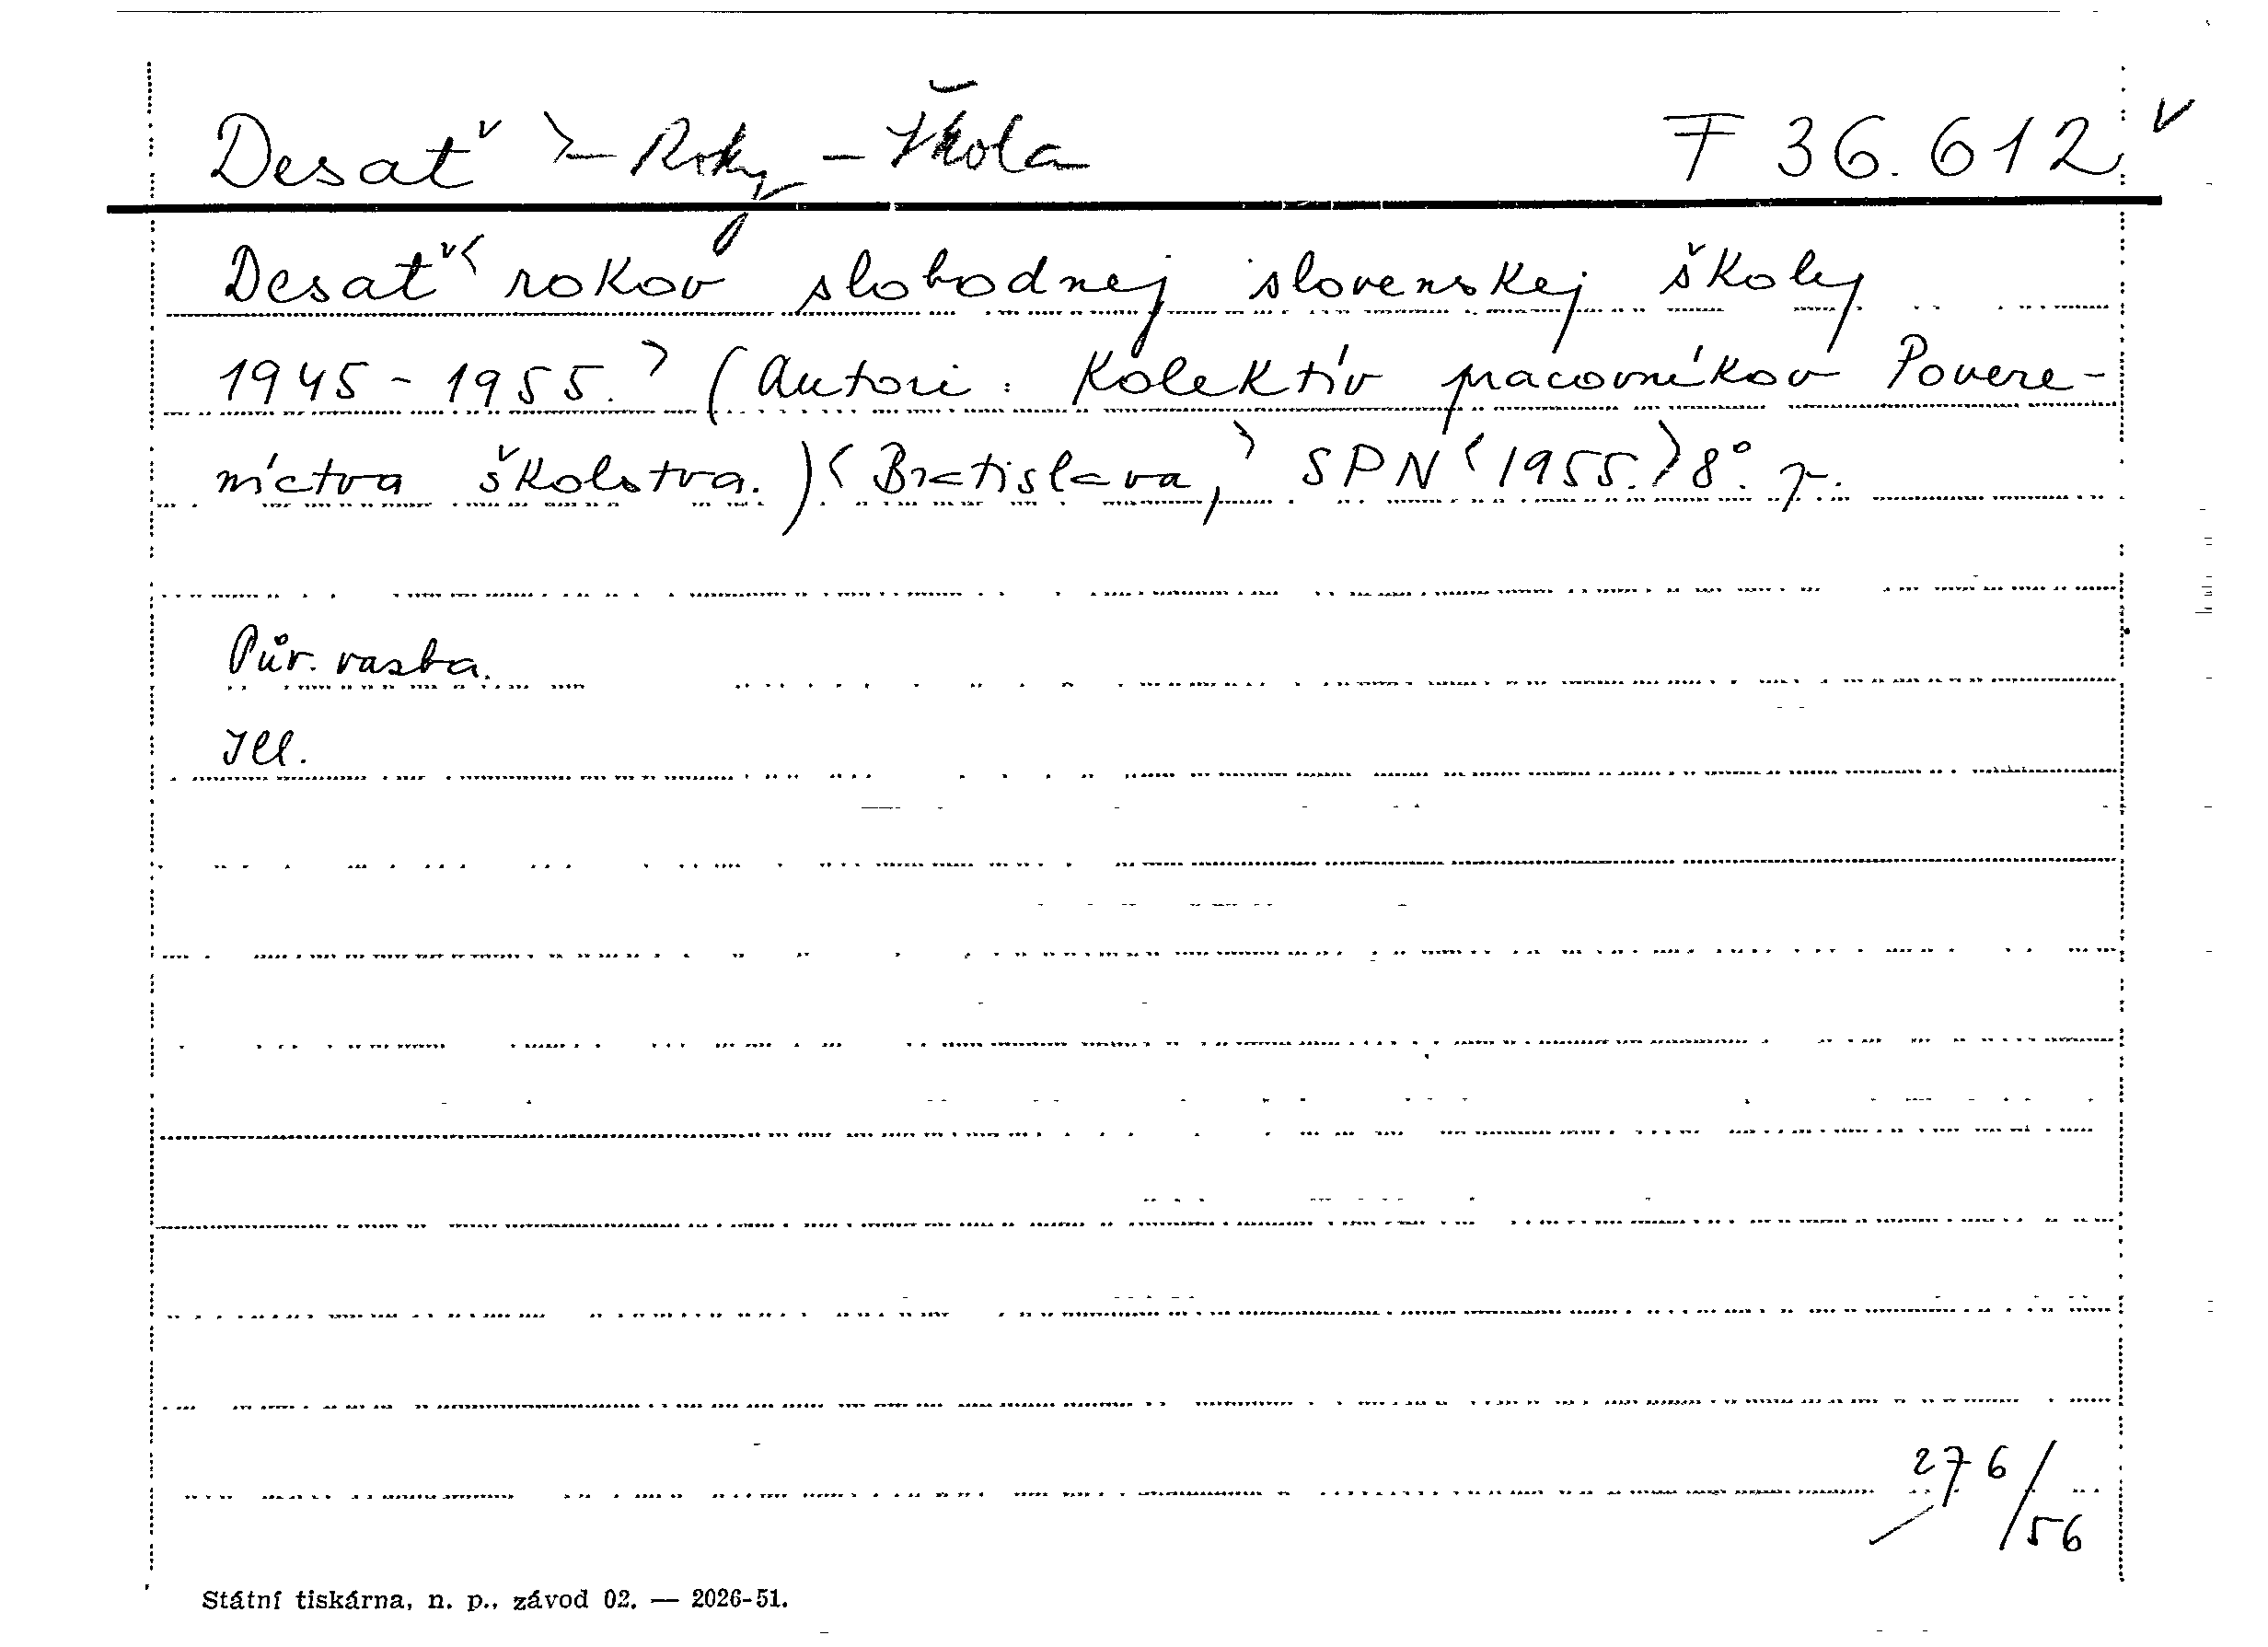 Desať >- Roky - Škola F 36.612
Desať < rokov slobodnej slovenskej školy
1945 - 1955. > (Autori: Kolektív pracovníkov Povere-
níctva školstva.) < Bratislava, > SPN < 1955. > 8°. p.
Pův. vazba.
Ill.
276/56
Státní tiskárna, n. p., závod 02. — 2026-51.